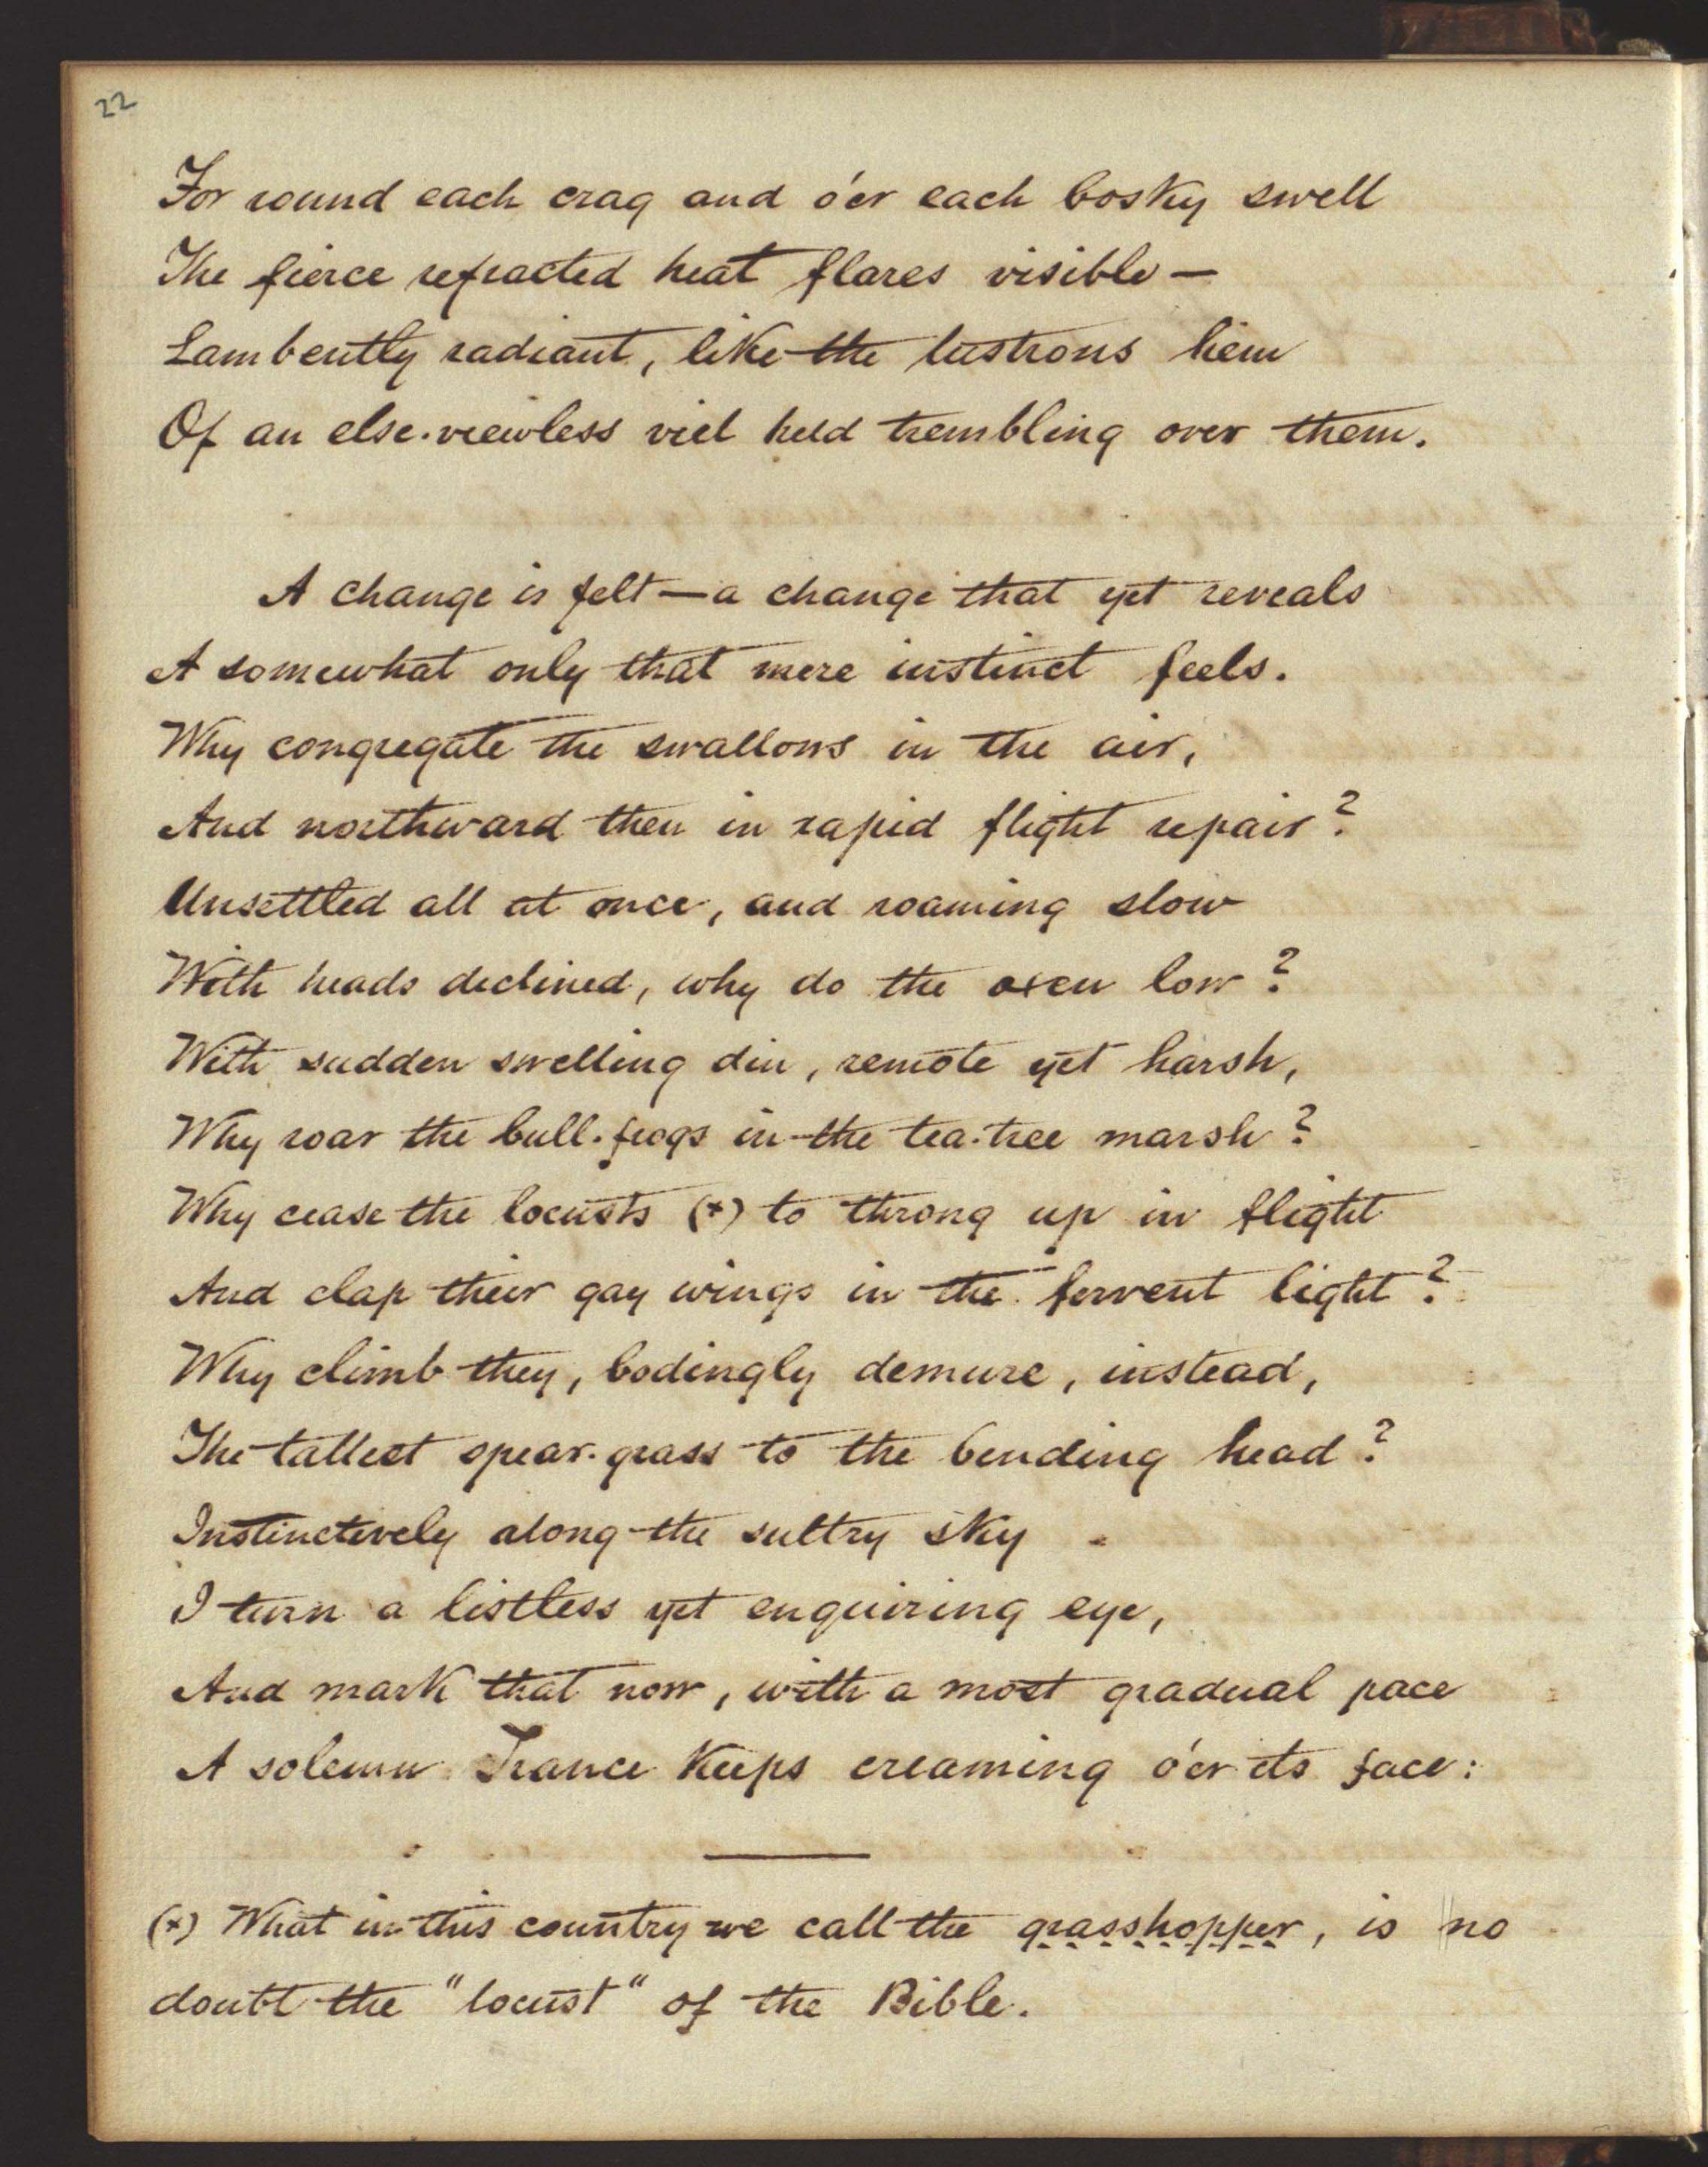 22
For round each crag and o'er each bosky swell
The fierce refracted heat flares visible—
Lambently radiant, like the lustrous hem
Of an else-viewless viel held trembling over them.
A change is felt—a change that yet reveals
A somewhat only that mere instinct feels.
Why congregate the swallows in the air,
And northward then in rapid flight repair?
Unsettled all at once, and roaming slow
With heads declined, why do the oxen low?
With sudden swelling din, remote yet harsh,
Why roar the bull-frogs in the tea-tree marsh?
Why cease the locusts (+) to throng up in flight
And clap their gay wings in the fervent light?
Why climb they, bodingly demure, instead,
The tallest spear-grass to the bending head?
Instinctively along the sultry sky
I turn a listless yet enquiring eye,
And mark that now, with a most gradual pace
A solemn Trance keeps creaming o'er its face:
(+) What in this country we call the grasshopper, is no
doubt the "locust" of the Bible.